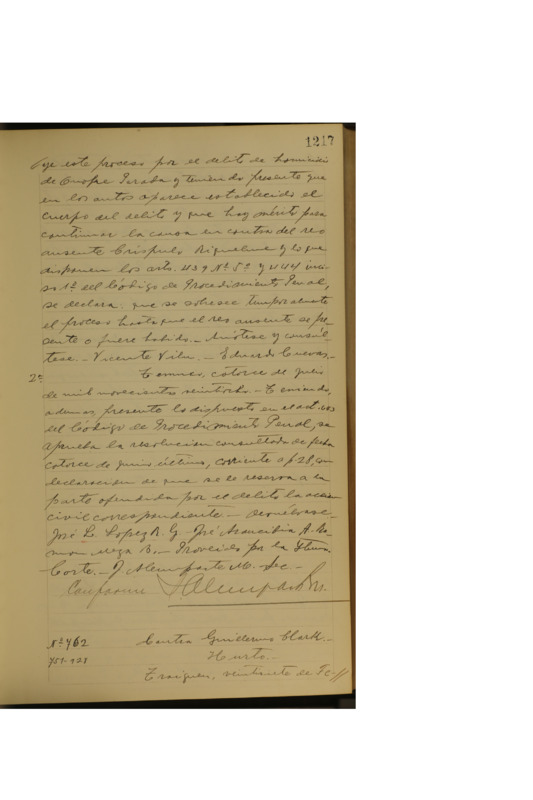 1217
este proceso por el delito de homicidio
de Onofre Parada y teniendo presente que
en los autos aparece establecido el
cuerpo del delito y que hay mérito para
continuar la causa en contra del reo
ausente Críspulo Riquelme y lo que
disponen los arts. 439 Nº 5º y 444 inci-
so 1º del Código de Procedimiento Penal,
se declara: que se sobresee temporalmente
el proceso hasta que el reo ausente se pre-
sente o fuere habido. Anótese y consúl-
tese. - Vicente Vilu. - Eduardo Cuevas. -
2ª Temuco, catorce de Julio
de mil novecientos veintiocho. - Teniendo,
ademas, presente lo dispuesto en el art.
del Código de Procedimiento Penal, se
aprueba la resolucion consultada de fecha
catorce de Junio último, corriente a f 28, con
declaracion de que se le reserva a la
parte ofendida por el delito la accion
civil correspondiente - Devuélvase. -
José L. Lopez R. G - José Arancibia A. Ra-
mon Meza B. - Proveido por la Iltma.
Corte. - J Alemparte M. Sec -
Conforme
Nº 462 Contra Guillermo Clark. -
Hurto. -
Traiguen, veintisiete de